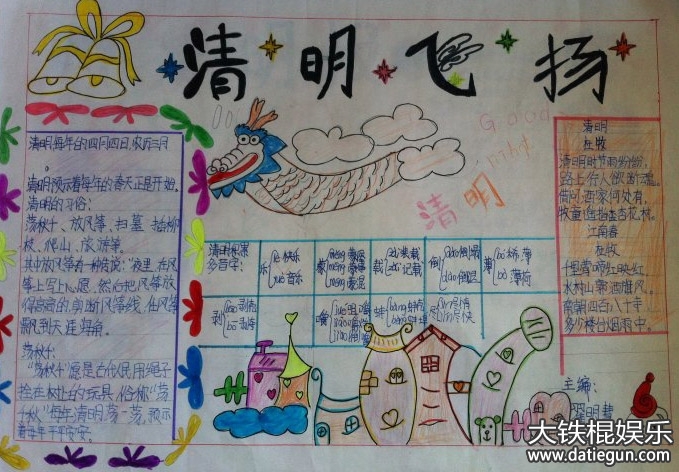 清明飞扬
清明每年的四月四日,农历三月
。
清明预示着每年的春天正是开始。
清明的习俗:
荡秋千、放风筝、扫墓、插柳
枝、爬山、旅游等。
其中放风筝有一种传说:"夜里,在风
筝上写上心愿,然后把风筝放
得高高的,剪断风筝线,任风筝
飘到天涯海角。
荡秋千:
"荡秋千"愿是古代很用绳子
拴在树上的玩具,俗称"荡
千秋"每年清明荡一荡,预示
着每年平平安安。
Good
清明
多音字:
乐 快乐 音乐
载 装载 记载
倒
薄 薄荷
剥 剥削
嚼
蚌
尽
清明
杜牧
清明时节雨纷纷,
路上行人欲断魂。
借问酒家何处有,
牧童遥指杏花村。
江南春
杜牧
千里莺啼绿映红,
水村山郭酒旗风。
南朝四百八十寺
多少楼台烟雨中。
主编:
明慧
大铁棍娱乐
www.datiegun.com